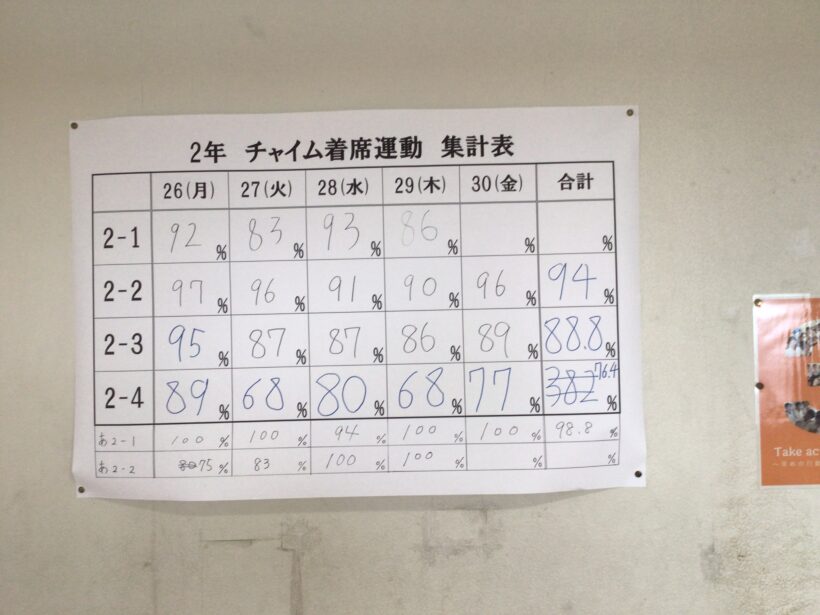 2年 チャイム着席運動 集計表
26(月) 27(火) 28(水) 29(木) 30(金) 合計
2-1 92% 83% 93% 86% % %
2-2 97% 96% 91% 90% 96% 94%
2-3 95% 87% 87% 86% 89% 88.8%
2-4 89% 68% 80% 68% 77% 382 76.4%
あ2-1 100% 100% 94% 100% 100% 98.8%
あ2-2 80 75% 83% 100% 100% % %
Take ac